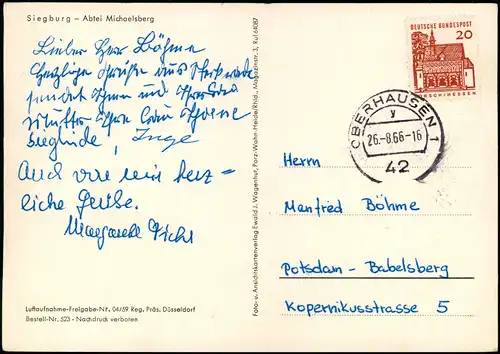 Siegburg – Abtei Michaelsberg
Lieber Herr Böhme
Herzliche Grüße aus
sendet Ihnen und Ihrer
Mutter Ihre
Sieglinde, Inge
Auch von mir herz=
liche Grüße.
Margarete
Luftaufnahme-Freigabe-Nr. 04/59 Reg. Präs. Düsseldorf
Bestell-Nr. 523 - Nachdruck verboten
Foto- u. Ansichtskartenverlag Ewald J. Wagenhut, Porz-Wahn-Heide/Rhld., Magazinstr. 3, Ruf 64087
DEUTSCHE BUNDESPOST
20
LORSCH/HESSEN
OBERHAUSEN 1
y
26.-8.66-16
42
Herrn
Manfred Böhme
Potsdam - Babelsberg
Kopernikusstrasse 5